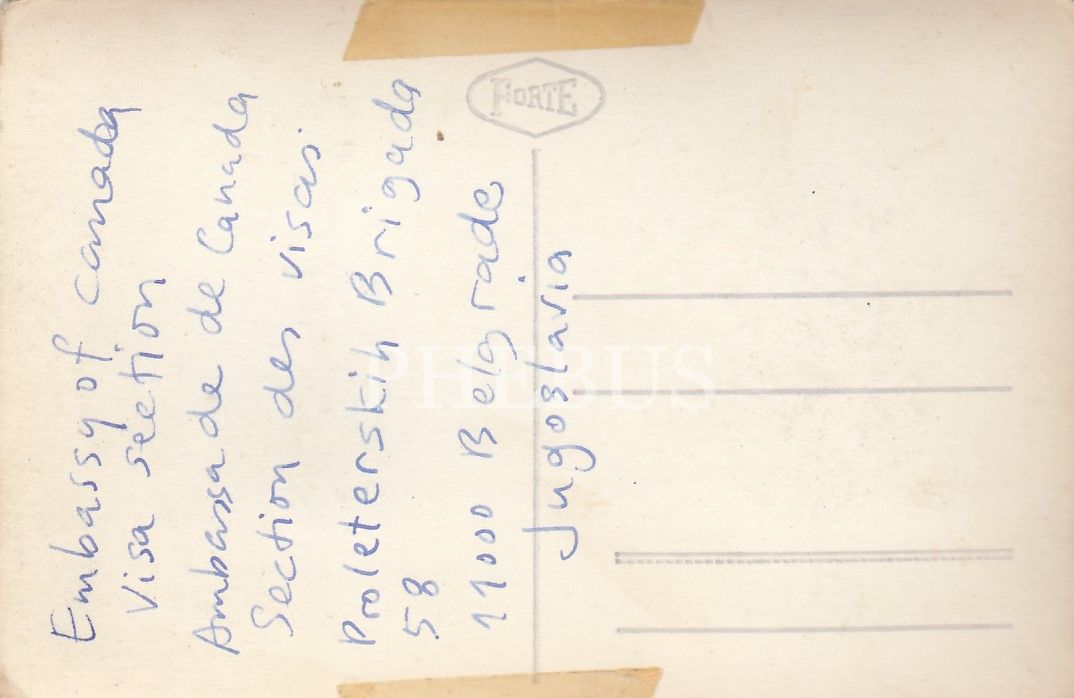 Embassy of Canada
Visa section
Ambassade de Canada
Section des visas
Proleterskih Brigada
58
11000 Belgrade
Jugoslavia
FORTE
PHEBUS